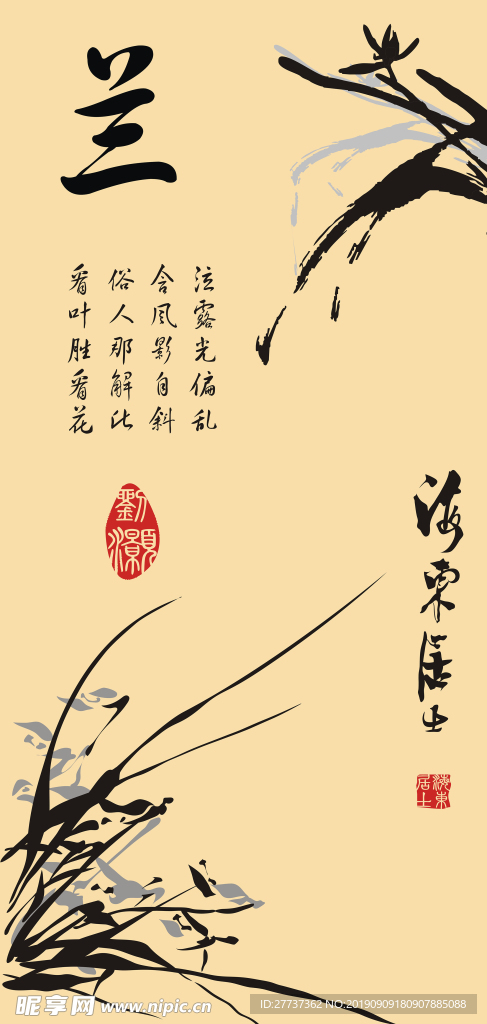 兰
泣露光偏乱
含风影自斜
俗人那解此
看叶胜看花
劉灝
海東居士
海東居士
昵享网 www.nipic.cn
ID:27737362 NO:20190909180907885088